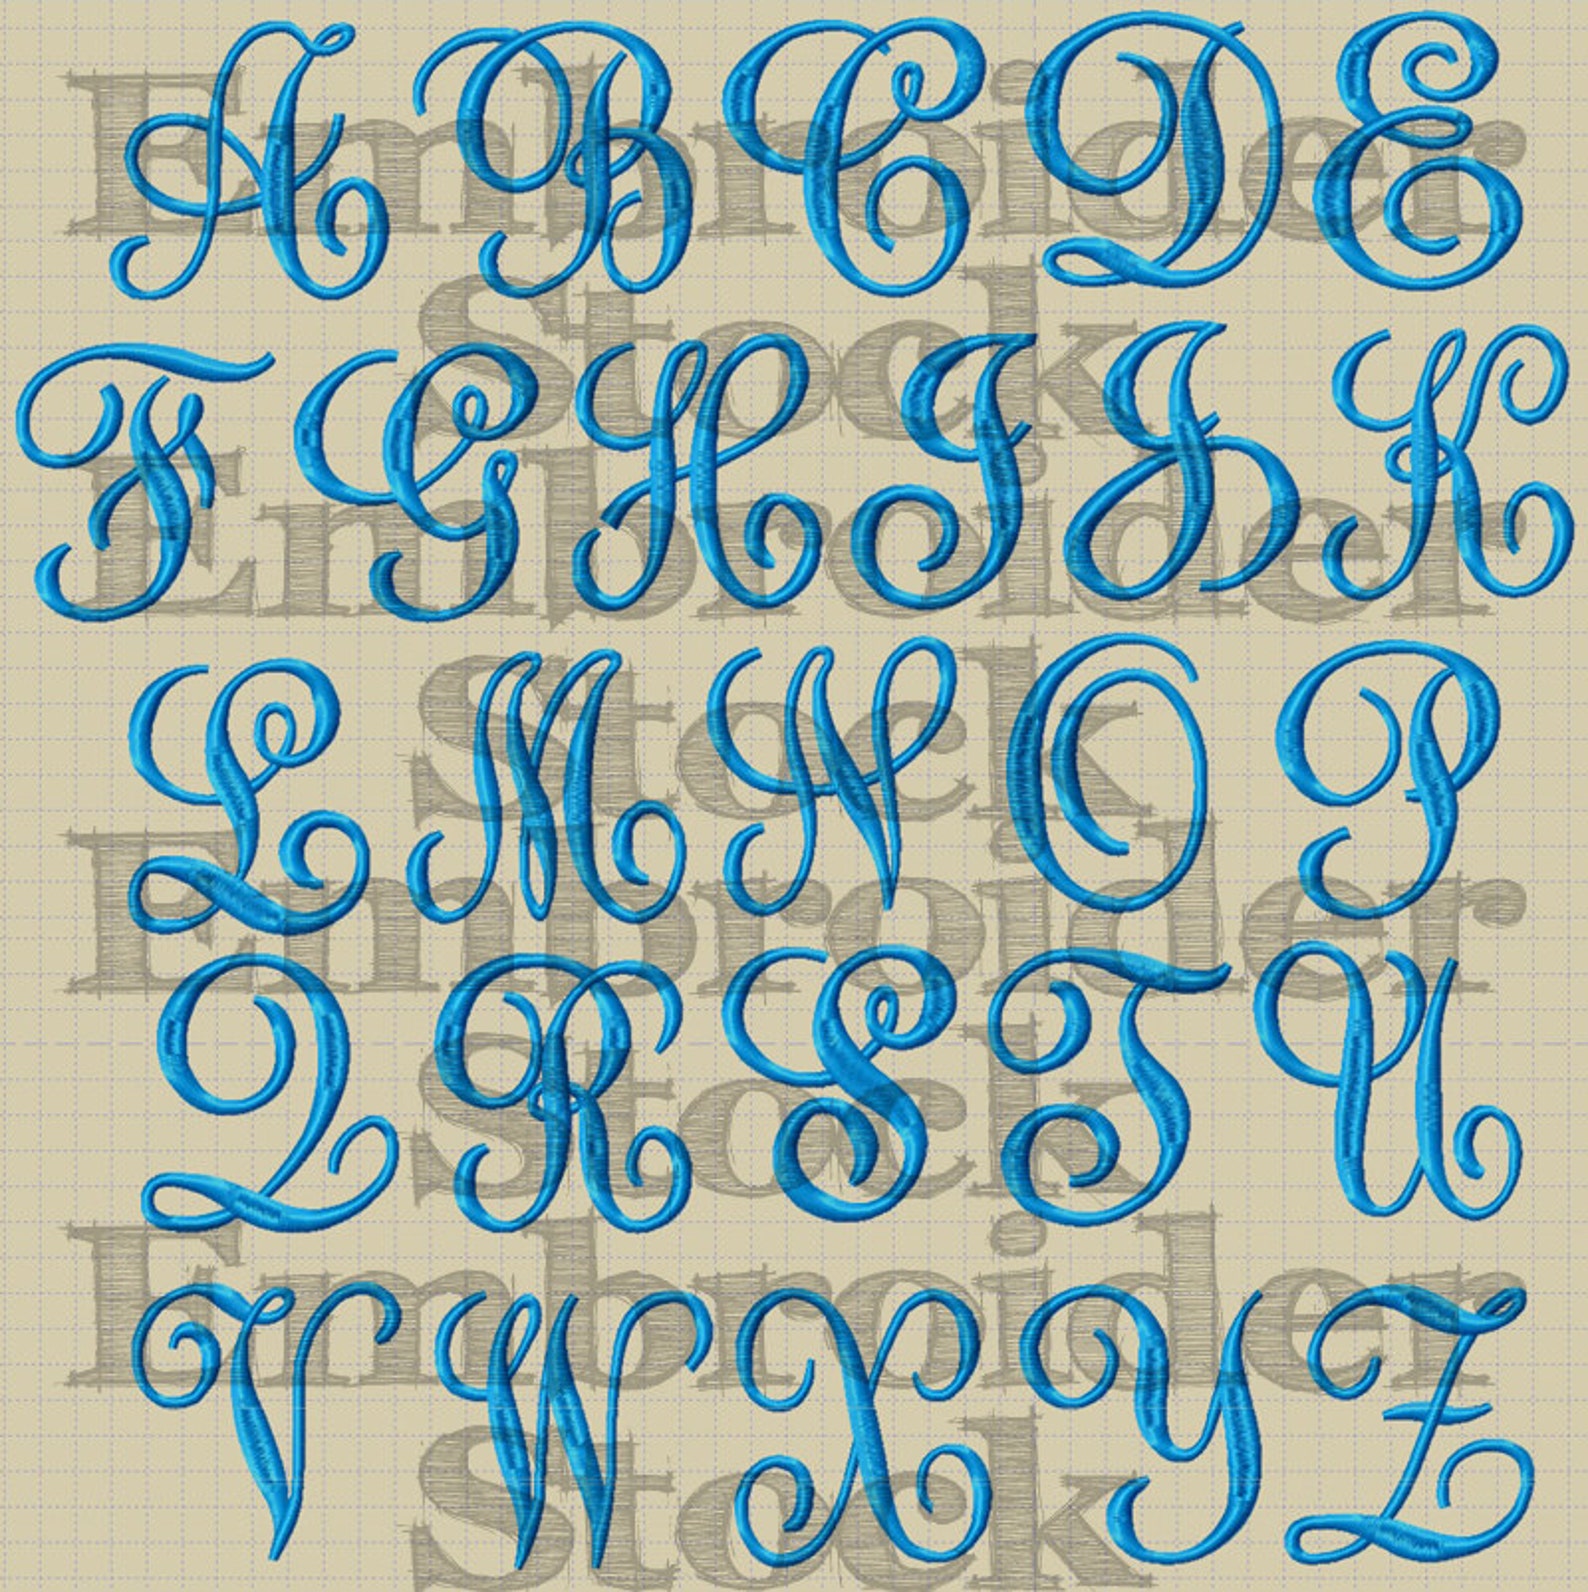 A B C D E
F G H I J K
L M N O P
Q R S T U
V W X Y Z
Embroider
Stock
Embroider
Stock
Embroider
Stock
Embroider
Stock